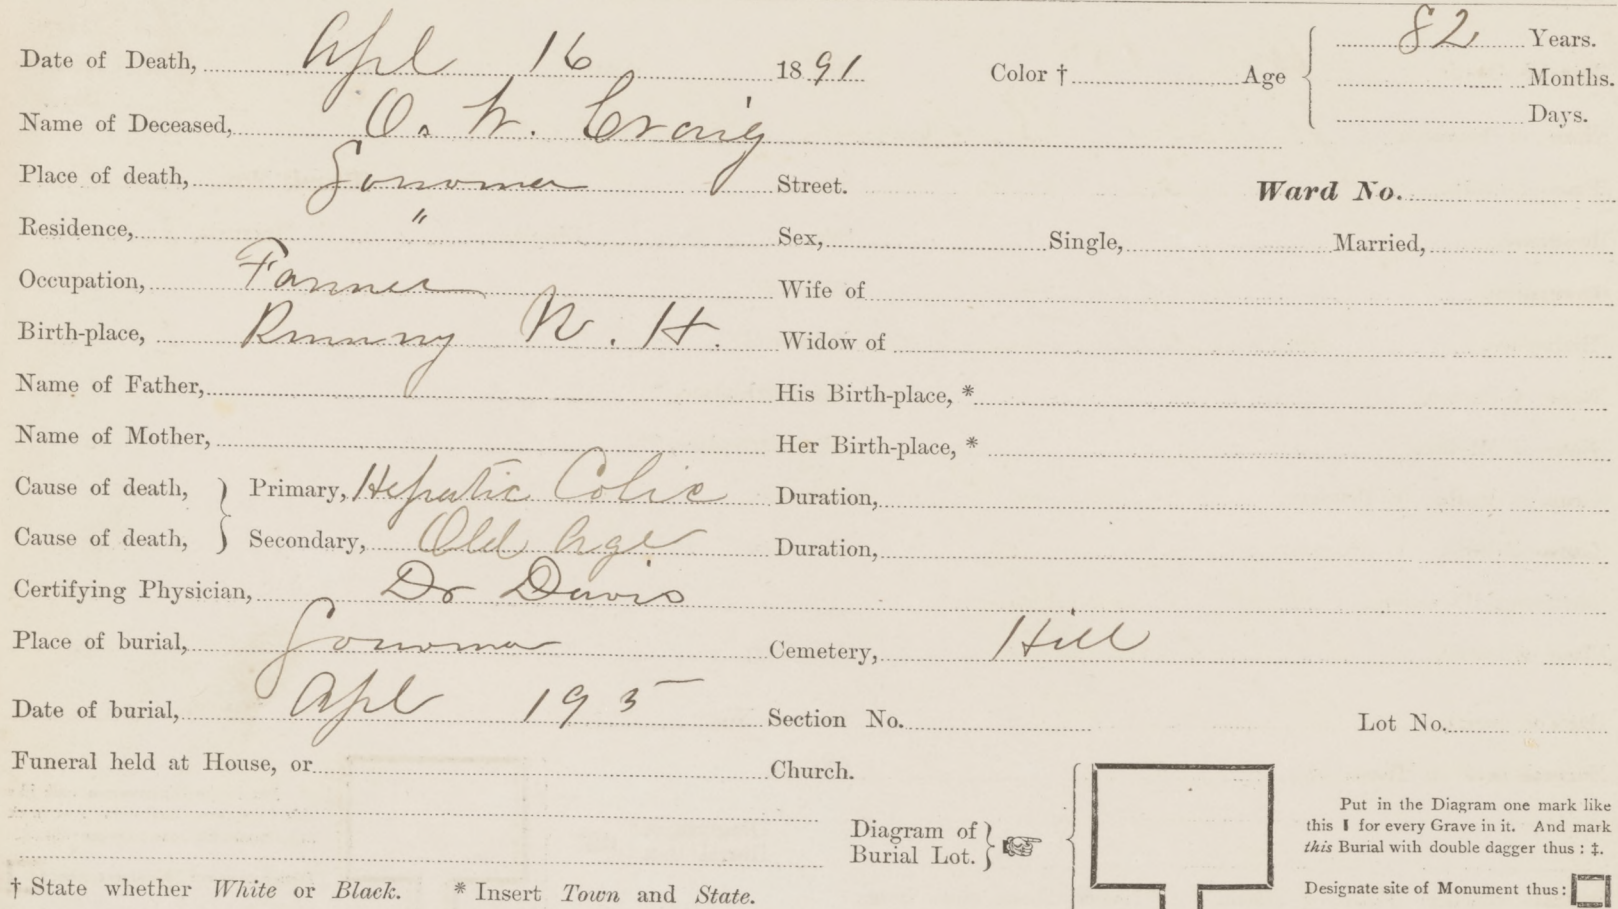 Date of Death, Apl 16 1891 Color † Age 82 Years.
Months.
Days.
Name of Deceased, O. W. Craig
Place of death, Sonoma Street. Ward No.
Residence, " Sex, Single, Married,
Occupation, Farmer Wife of
Birth-place, Rumny N. H. Widow of
Name of Father, His Birth-place, *
Name of Mother, Her Birth-place, *
Cause of death, } Primary, Hepatic Colic Duration,
Cause of death, } Secondary, Old Age Duration,
Certifying Physician, Dr Davis
Place of burial, Sonoma Cemetery, Hill
Date of burial, Apl 19 Section No. Lot No.
Funeral held at House, or Church.
Diagram of
Burial Lot. }
Put in the Diagram one mark like
this for every Grave in it. And mark
this Burial with double dagger thus : ‡.
Designate site of Monument thus:
† State whether White or Black. * Insert Town and State.